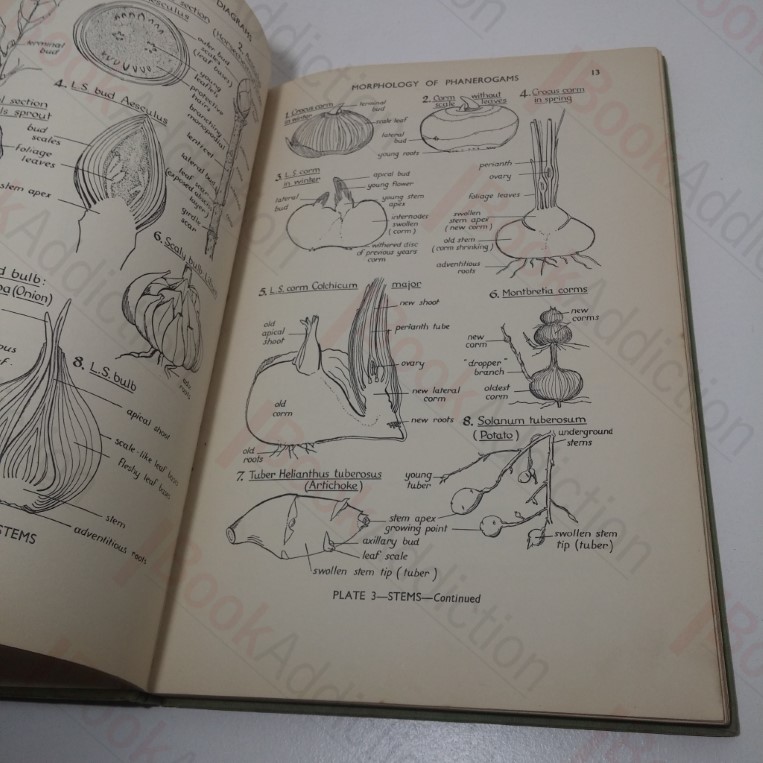 DIAGRAMS
section
Aesculus
2.
terminal
bud
outer bud
scales
(leaf bases)
young
leaflets
protective
hairs
branching
monopodial
lenticel
4. L.S. bud Aesculus
section
sprout
bud
scales
foliage
leaves
stem apex
lateral bud
leaf scar
girdle
scar
6. Scaly bulb Lilium
bulb:
(Onion)
8. L.S. bulb
apical shoot
scale-like leaf base
fleshy leaf base
stem
adventitious roots
STEMS
MORPHOLOGY OF PHANEROGAMS
13
1. Crocus corm
in winter
terminal
bud
scale leaf
lateral
bud
young roots
2. Corm without
scale leaves
4. Crocus corm
in spring
perianth
ovary
foliage leaves
swollen
stem apex
(new corm)
old stem
(corm shrinking)
adventitious
roots
3. L.S. corm
in winter
apical bud
young flower
lateral
bud
young stem
apex
internodes
swollen
(corm)
withered disc
of previous years
corm
5. L.S. corm Colchicum major
new shoot
old
apical
shoot
perianth tube
ovary
old
corm
new lateral
corm
new roots
old
roots
6. Montbretia corms
new
corms
new
corm
"dropper"
branch
oldest
corm
7. Tuber Helianthus tuberosus
(Artichoke)
stem apex
growing point
axillary bud
leaf scale
swollen stem tip (tuber)
8. Solanum tuberosum
(Potato)
underground
stems
young
tuber
swollen stem
tip (tuber)
PLATE 3—STEMS—Continued
BookAddiction